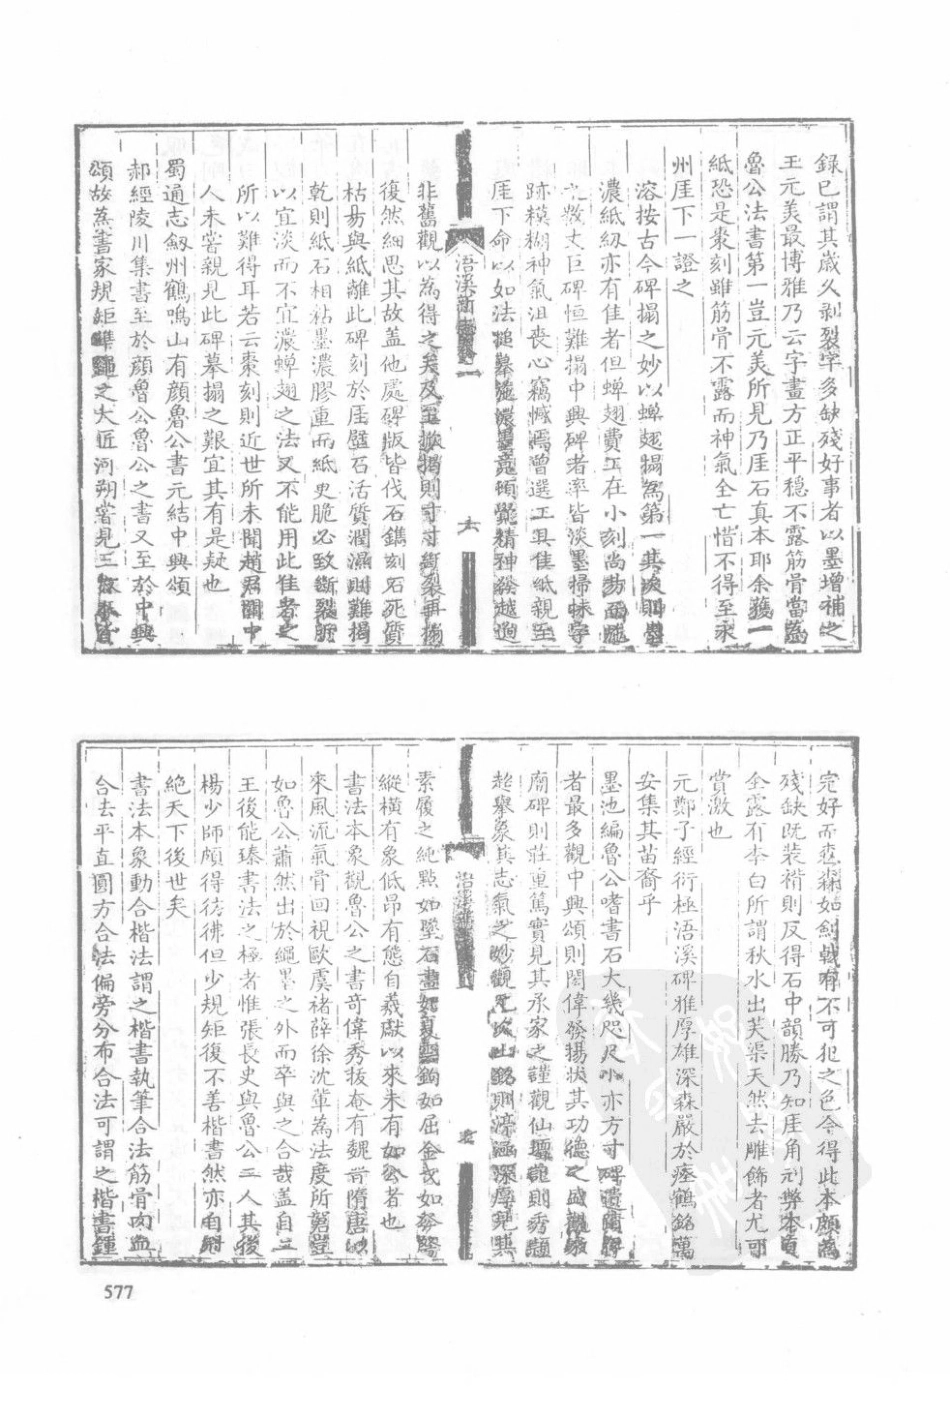 錄已謂其歲久剥裂字多缺殘好事者以墨增補之
王元美最博雅乃云字畫方正平穩不露筋骨當為
魯公法書第一豈元美所見乃厓石真本耶余獲一
紙恐是棗刻雖筋骨不露而神氣全亡惜不得至永
州厓下一證之
溶按古今碑搨之妙以蟬翅搨為第一其次則墨
濃紙紉亦有佳者但蟬翅費工在小刻尚易而
數丈巨碑恒難搨中興碑者率皆淡墨掃抹字
跡模糊神氣沮喪心竊憾焉曾選工具佳紙親至
厓下命以如法搥摹施濃墨竟頓覺精神發越迥
浯溪新志
六
非舊觀以為得之矣及至揭則寸寸斷裂再搨
復然細思其故蓋他處碑版皆伐石鐫刻石死質
枯易與紙離此碑刻於厓壁石活質潤濕則難揭
乾則紙石相粘墨濃膠重而紙更脆必致斷裂所
以宜淡而不宜濃蟬翅之法又不能用此佳者之
所以難得耳若云棗刻則近世所未聞趙君關中
人未嘗親見此碑摹搨之艱宜其有是疑也
蜀通志劔州鶴鳴山有顔魯公書元結中興頌
郝經陵川集書至於顔魯公魯公之書又至於中興
頌故為書家規矩準繩之大匠河朔嘗見三
完好而森森如劍戟有不可犯之色今得此本頗為
殘缺旣装褙則反得石中韻勝乃知厓角刓弊本真
全露有李白所謂秋水出芙渠天然去雕飾者尤可
賞激也
元鄭子經衍極浯溪碑雅厚雄深森嚴於瘞鶴銘萬
安集其苗裔乎
墨池編魯公嗜書石大幾咫尺小亦方寸碑遺
者最多觀中興頌則閎偉發揚狀其功德之盛觀家
廟碑則莊重篤實見其承家之謹觀仙壇記則秀
超舉象其志氣之妙觀元次山銘則淳涵深厚見其
浯溪新志
素履之純點如墜石畫如夏雲鉤如屈金戈如發弩
縱横有象低昂有態自羲獻以來未有如公者也
書法本象觀魯公之書奇偉秀拔奄有魏晉隋唐以
來風流氣骨回視歐虞褚薛徐沈輩為法度所窘豈
如魯公蕭然出於繩墨之外而卒與之合哉蓋自二
王後能臻書法之極者惟張長史與魯公二人其後
楊少師頗得彷彿但少規矩復不善楷書然亦自
絕天下後世矣
書法本象動合楷法謂之楷書執筆合法筋骨肉血
合去平直圓方合法偏旁分布合法可謂之楷書鍾
577